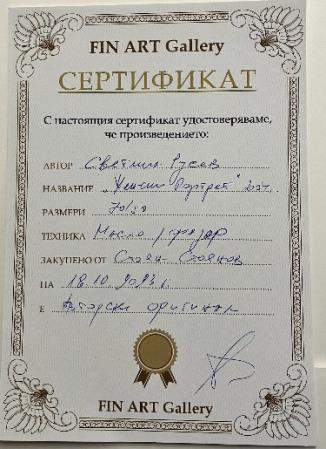 FIN ART Gallery
СЕРТИФИКАТ
С настоящия сертификат удостоверяваме,
че произведението:
АВТОР Светлин Русев
НАЗВАНИЕ "Женски портрет"
РАЗМЕРИ 70/50
ТЕХНИКА Масло / фазер
ЗАКУПЕНО ОТ Стоян Стоянов
НА 18.10.2023 г.
Е Авторски оригинал
FIN ART Gallery